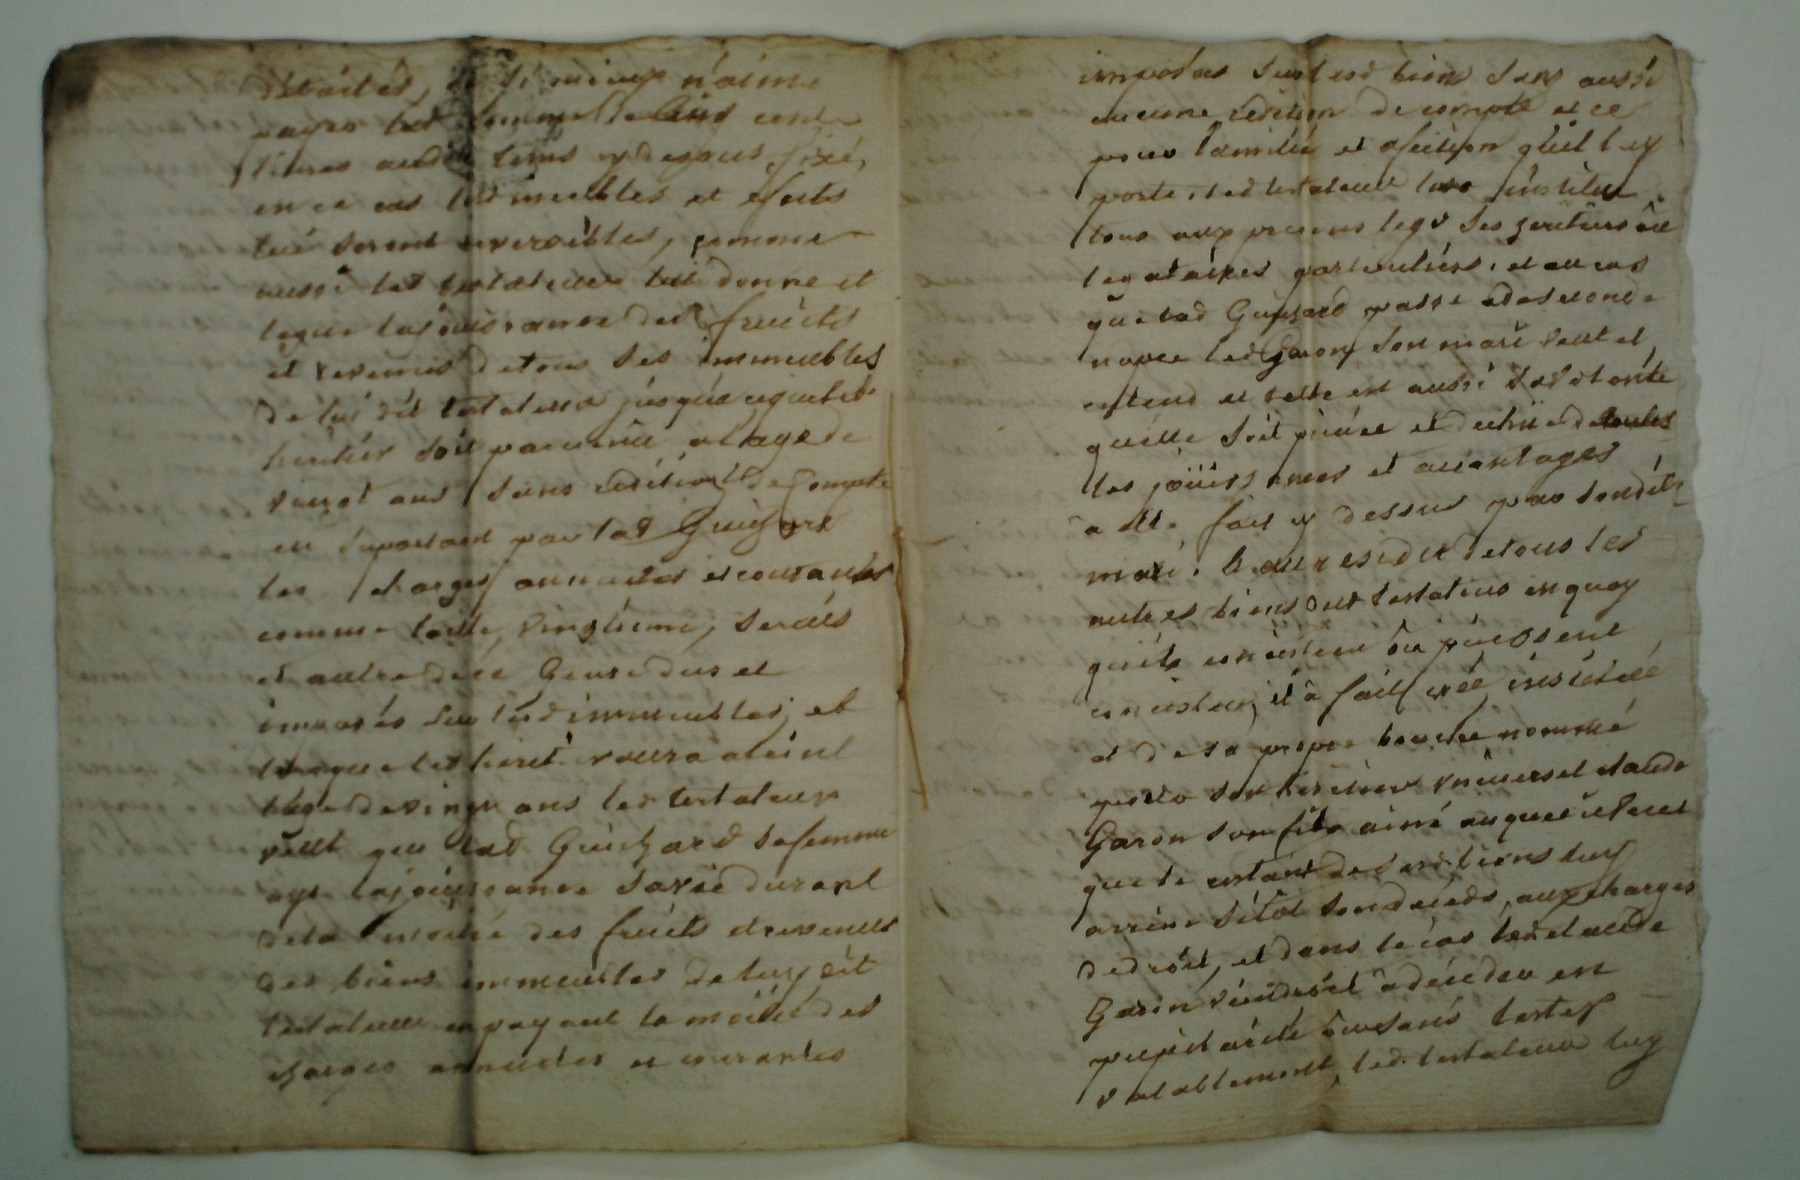 si mieux n'aime
payer led somme de cent
livres audit tems cy dessus fixé,
en ce cas lesd meubles et efets
seront reversibles, comme
aussi led testateur luit donne et
legue la jouissance des fruits
et revenus de tous ses immeubles
de lui dit testateur jusqu'a ce que led
heritier soit parvenu a l'age de
vingt ans sans redition de compte
en suportant par lad Guichard
les charges annuelles et courantes
comme taille, vingtieme, servis
et autre de ce genre dus et
imposés sur lesd immeubles, et
lorsque led herit. aura ateint
l'age de vingt ans led testateur
veut que lad Guichard sa femme
aye la jouissance sa vie durant
de la moitié des fruits et revenus
des biens immeubles de luy dit
testateur en payant la moitié des
charges annuelles et courantes
imposés sur lesd biens sans aussi
aucune redition de compte et ce
pour l'amitié et afection qu'il luy
porte, led testateur institue
tous aux presens legs ses heritiers
legataires particuliers, et au cas
que lad Guichard passe a des seconde
noces led Garon son mari veut et
entend et telle est aussi sa volonté
quelle soit privée et dechue de toutes
les joüissances et avantages
a elle fait cy dessus par sondit
mari. & au residu de tous les
autres biens dud testateur en quoy
qu'ils consistent ou puissent
consister, il a fait, créé, institué
et de sa propre bouche nommé
son heritier universel claude
Garon son fils ainé auquel il veut
que le restant de sesd biens luy
arrive sitot son deceds, aux charges
de droit, et dans le cas led claude
Garon viendroit a deceder en
pupilarité ou sans tester
valablement, led. testateur luy